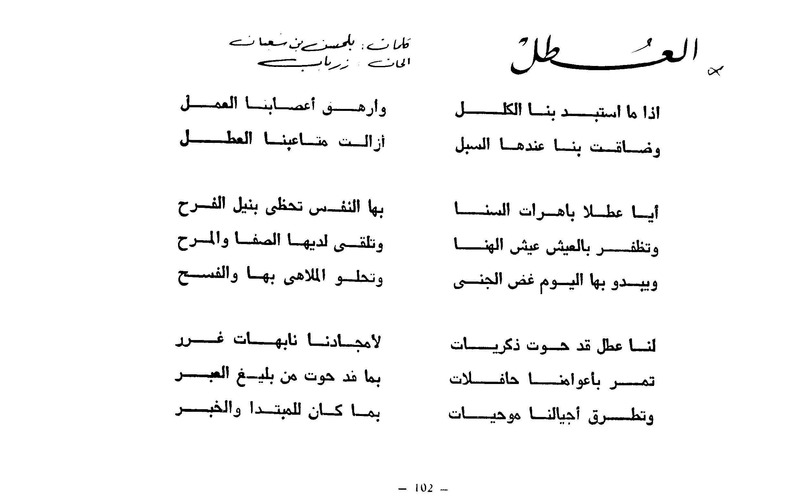 العُطلْ
كلمات : بلحسن بن شعبان
الحان : زرياب
اذا ما استبد بنا الكلل وارهق أعصابنا العمل
وضاقت بنا عندها السبل أزالت متاعبنا العطل
أيا عطلا باهرات السنا بها النفس تحظى بنيل الفرح
وتظفر بالعيش عيش الهنا وتلقى لديها الصفا والمرح
ويبدو بها اليوم غض الجنى وتحلو الملاهى بها والفسح
لنا عطل قد حوت ذكريات لأمجادنا نابهات غرر
تمر بأعوامنا حافلات بما قد حوت من بليغ العبر
وتطرق أجيالنا موحيات بما كان للمبتدا والخبر
– 102 –